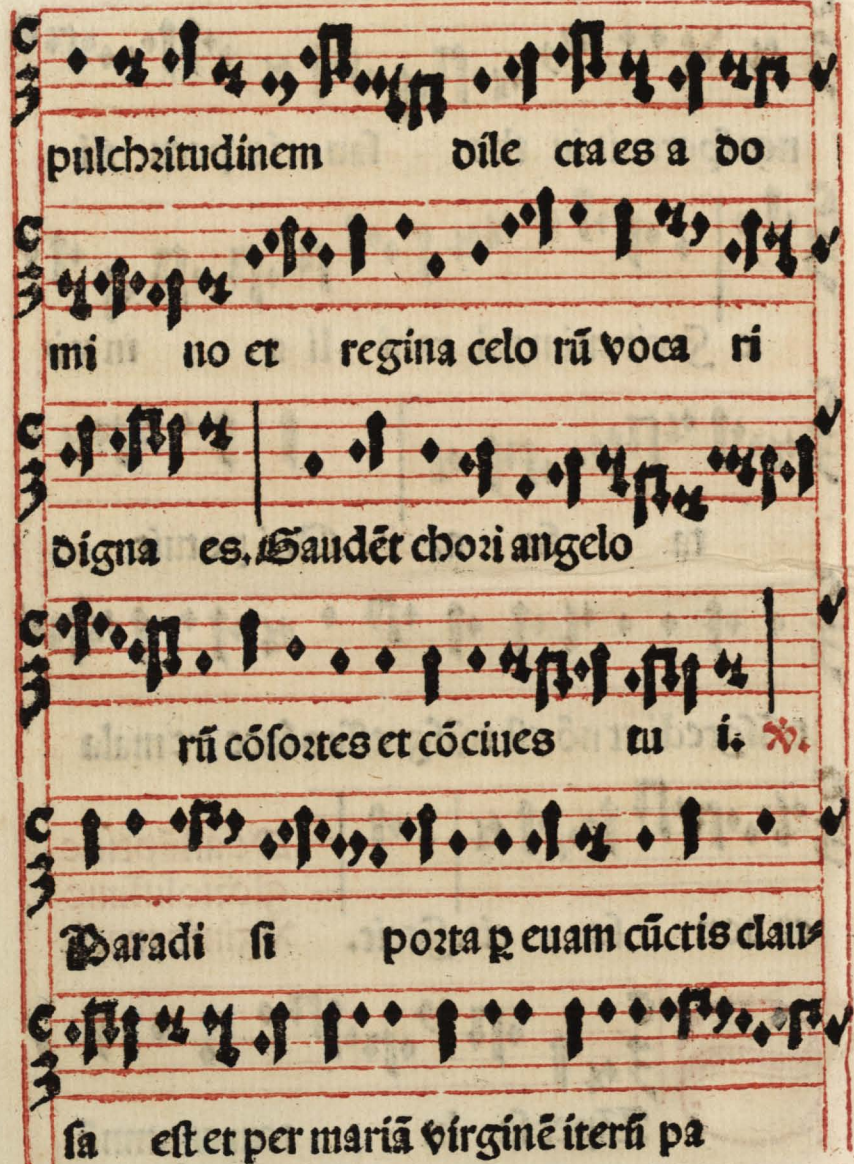 pulchꝛitudinem dile cta es a do
mi no et regina celo rū voca ri
digna es. Gaudēt choꝛi angelo
rū cōſoꝛtes et cōciues tu i. ℣.
Paradi ſi poꝛta ꝑ euam cūctis clau⸗
ſa eſt et per mariā virginē iterū pa